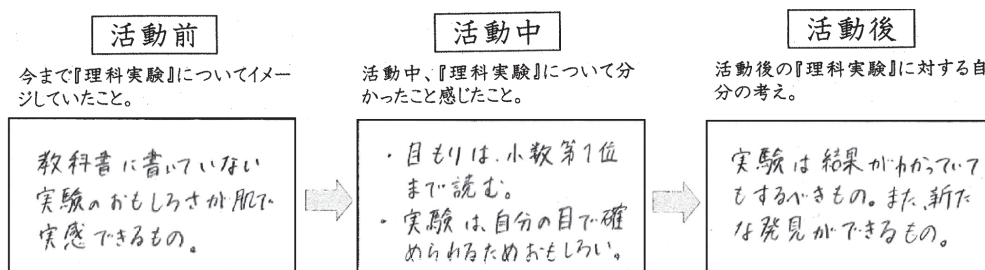 活動前
今まで『理科実験』についてイメー
ジしていたこと。
教科書に書いていない
実験のおもしろさが肌で
実感できるもの。
活動中
活動中、『理科実験』について分
かったこと感じたこと。
・目もりは、小数第1位
まで読む。
・実験は、自分の目で確
められるためおもしろい。
活動後
活動後の『理科実験』に対する自
分の考え。
実験は結果がわかっていて
もするべきもの。また、新た
な発見ができるもの。